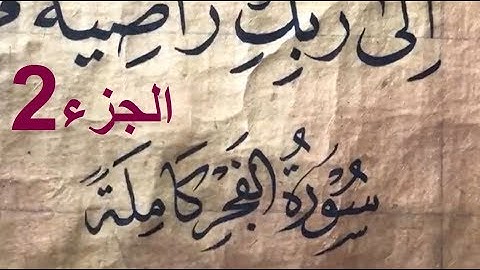 إِلَى رَبِّكِ رَاضِيَةً
الجزء 2
سُورَةُ الفَجْرِ كَامِلَةً